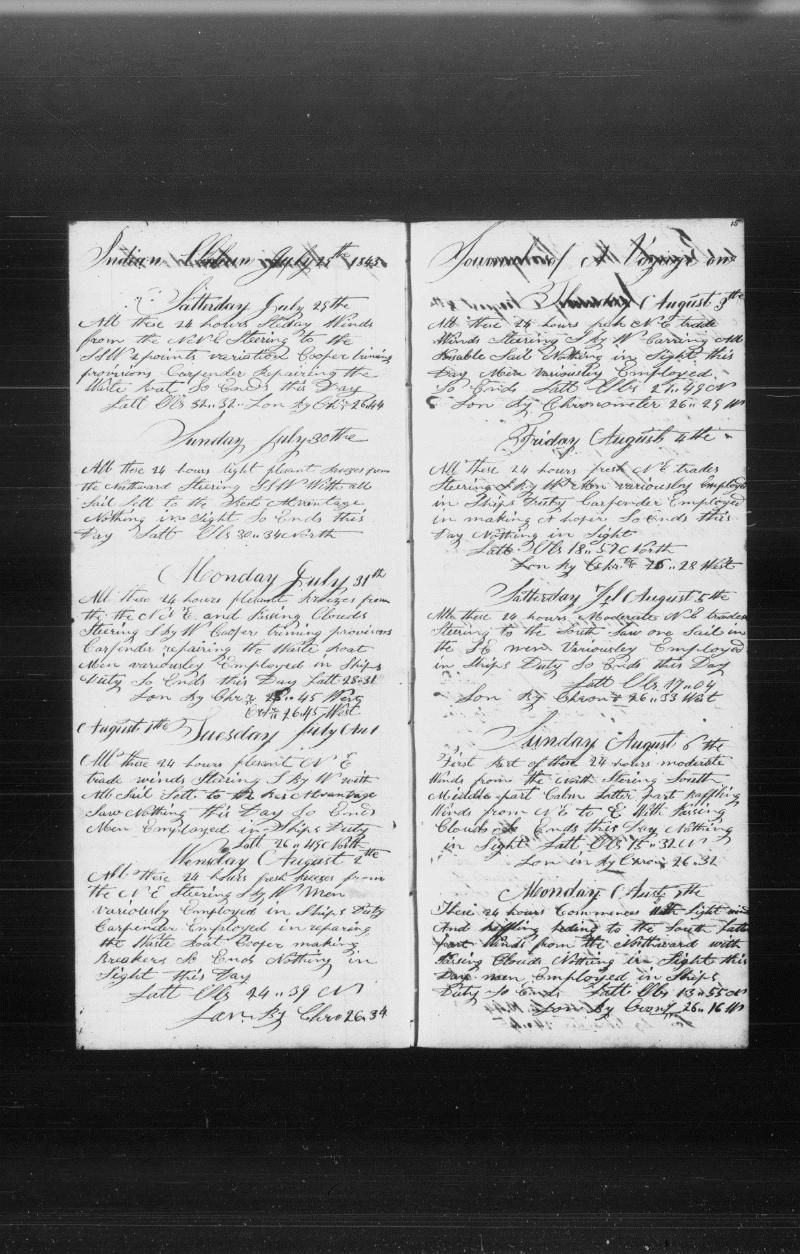 Indian July 25th 1843
Satterday July 29the
All these 24 hours Steday Winds
from the N.N.E Steering to the
SSW 2 points variation Cooper triming
provisions Carpender Repairing the
Waite boat So Ends this Day
Latt Obs 32 " 32 " Lon By Chr 26.44
Sunday July 30the
All these 24 hours light plesant breezes from
the Northward Steering SSW With all
Sail Sett to the Best Advantage
Nothing in Sight So Ends this
Day Latt Obs 30 " 34 North
Monday July 31th
All these 24 hours plesant Breezes from
the the N.N.E. and Pasing Clouds
Steering S by W Cooper triming provisions
Carpender repairing the Waite boat
Men variously Employed in Ships
Duty So Ends this Day Latt 28 " 31
Lon By Chr 45 West
26.45 West
August 1the Tuesday July
All these 24 hours plesent N E
trade winds Steering S by W with
All Sail Sett to the Advantage
Saw Nothing this Day So Ends
Men Employed in Ships Duty
Latt 26 " 49 North
Wensday August 2the
All these 24 hours fresh breezes from
the N E Steering S by W Men
variously Employed in Ships Duty
Carpender Employed in reparing
the Waite boat Cooper making
Breakers So Ends Nothing in
Sight this Day
Latt Obs 24 " 39 N
Lon By Chro 26.34
15
Journal of A Voyage on
August 3the
All these 24 hours fresh N E trade
Winds Steering S by W Carring All
Posable Sail Nothing in Sight this
Day Men Variously Employed
So Ends Latt Obs 21 " 49 N
Lon By Chronometer 26 " 29 W
Friday August 4the
All these 24 hours fresh N E trades
Steering S by W Men variously Employed
in Ships Duty Carpender Employed
in making A So Ends this
Day Nothing in Sight
Latt Obs 18 " 57 North
Lon By 28 West
Satterday August 5the
All these 24 hours Moderate N E trades
Steering to the South Saw one Sail in
the S E men Variously Employed
in Ships Duty So Ends this Day
Latt Obs 17 " 04
Lon By Chron 26 " 33 West
Sunday August 6the
First Part of these 24 hours moderate
Winds from the North Stering South
Middle part Calm Latter part baffling
Winds from N E to E With Pasing
Clouds Ends this Day Nothing
in Sight Latt Obs 15 " 32 N
Lon in by Chron 26 " 32
Monday 7the
These 24 hours Commences With Light wind
And baffling heding to the South Latter
part Winds from the Northward with
Pasing Clouds Nothing in Sight this
Day men Employed in Ships
Duty So Ends Latt Obs 13 " 55 N
Lon By Cron 26 " 16 W